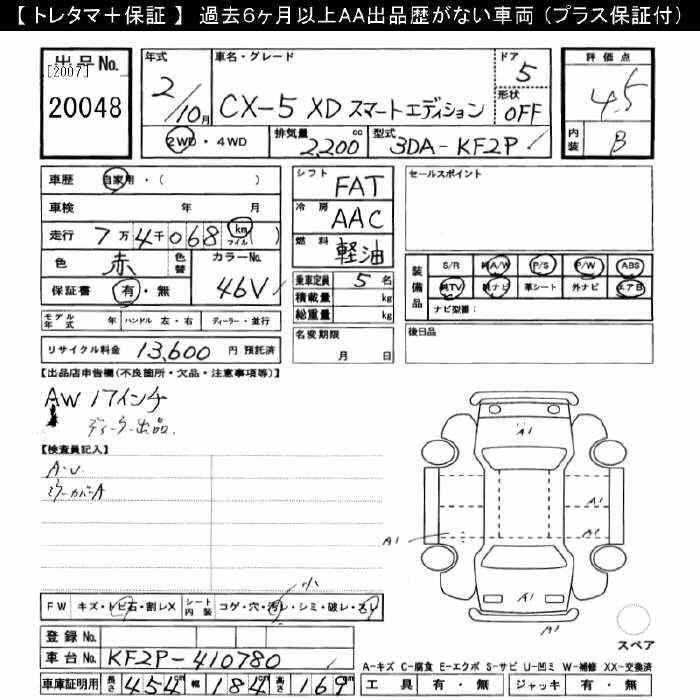 【 トレタマ＋保証 】 過去６ヶ月以上AA出品歴がない車両（プラス保証付）
出品No.
[2007]
20048
年式
2/10月
車名・グレード
CX-5 XD スマートエディション
ドア
5
形状
OFF
評価点
4.5
内装
B
2WD・4WD
排気量
2,200 cc
型式
3DA-KF2P
車歴 自家用・（ ）
車検 年 月
走行 7万4千068 km マイル ( )
色 赤 色替
カラーNo.
46V
保証書 有・無
モデル年式 年 ハンドル 左・右 ディーラー・並行
リサイクル料金 13,600 円 預託済
シフト FAT
冷房 AAC
燃料 軽油
乗車定員 5 名
積載量 kg
総重量 kg
名変期限
月 日
セールスポイント
装備品
S/R 純A/W P/S P/W ABS
純TV 純ナビ 革シート 外ナビ エア日
ナビ型番：
後日品
【出品店申告欄(不良箇所・欠品・注意事項等)】
AW 17インチ
ディーラー出品.
【検査員記入】
A-U
ミラーカバーA
A1
A1
A1
A1
A1
A1
小
FW キズ・トビ石・割レX
シート内装 コゲ・穴・汚レ・シミ・破レ・スレ
スペア
登録No.
車台No. KF2P-410780
車庫証明用 長さ 454 cm 幅 184 cm 高さ 169 cm
A-キズ C-腐食 E-エクボ S-サビ U-凹ミ W-補修 XX-交換済
工具 有・無 ジャッキ 有・無